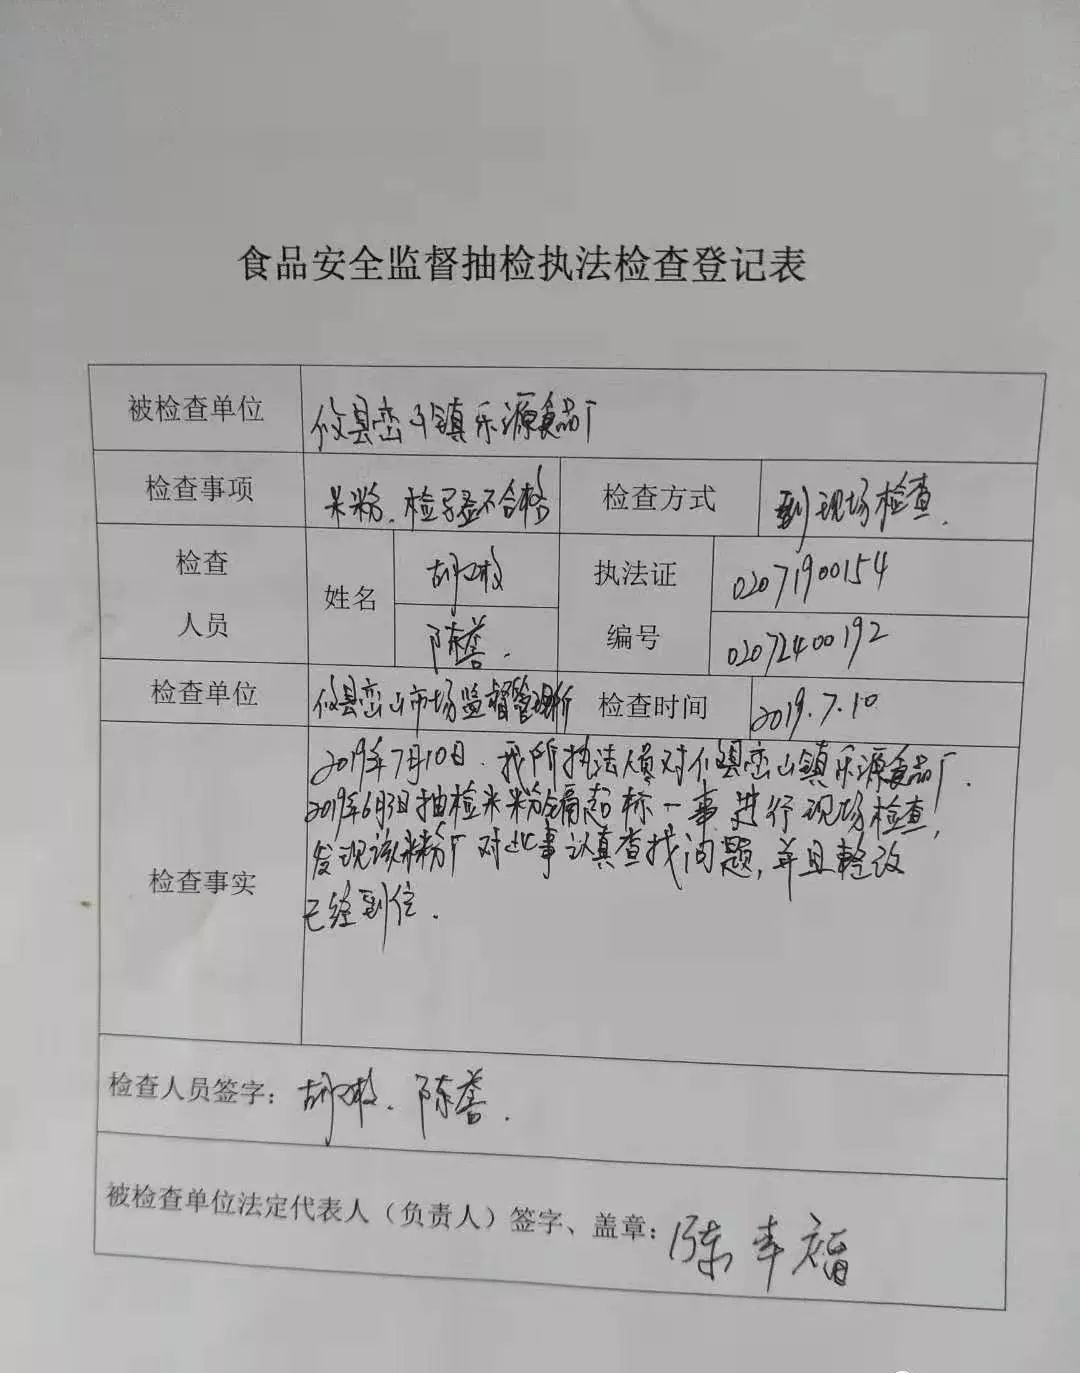 食品安全监督抽检执法检查登记表
被检查单位 攸县峦山镇乐源食品厂
检查事项 米粉.检验不合格 检查方式 到现场检查.
检查人员 姓名 胡 执法证编号 02071900154
陈誉. 02072400192
检查单位 攸县峦山市场监督管理所 检查时间 2019.7.10
检查事实
2019年7月10日.我所执法人员对攸县峦山镇乐源食品厂.
2019年6月3日抽检米粉镉超标一事进行现场检查,
发现该米粉厂对此事认真查找问题,并且整改
已经到位.
检查人员签字: 胡 . 陈誉.
被检查单位法定代表人（负责人）签字、盖章: 陈幸福